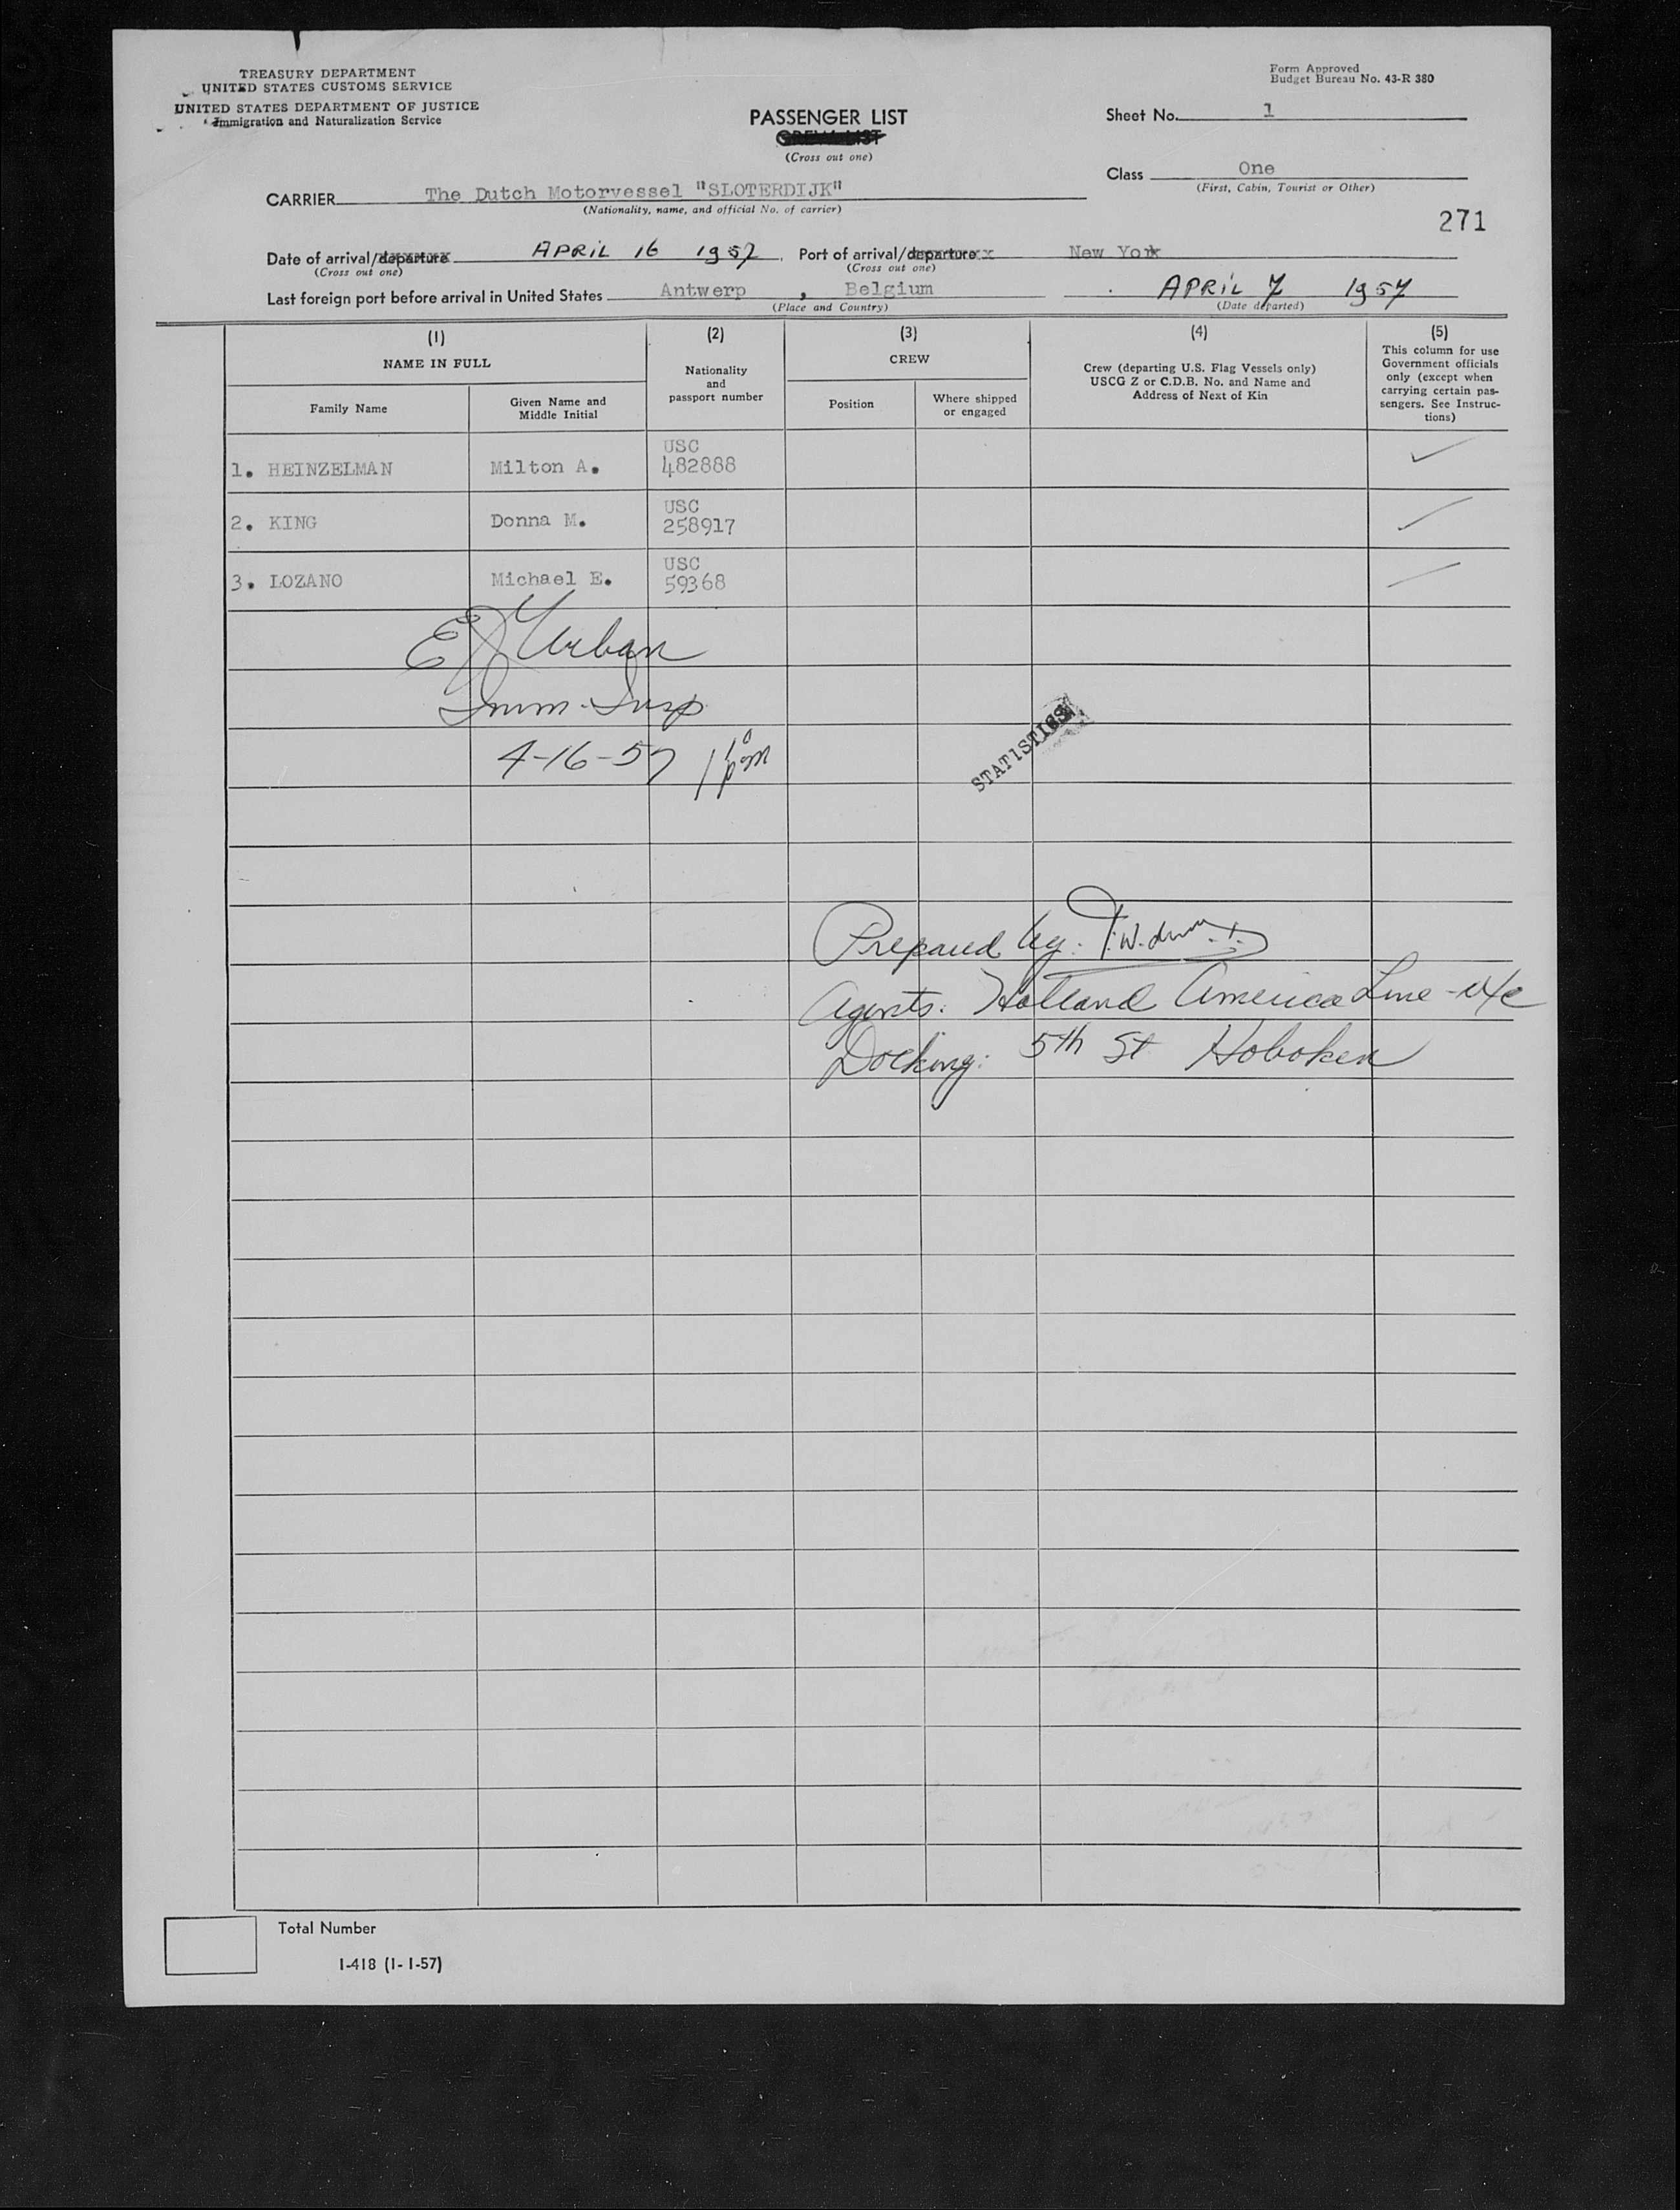 TREASURY DEPARTMENT
UNITED STATES CUSTOMS SERVICE
UNITED STATES DEPARTMENT OF JUSTICE
Immigration and Naturalization Service
Form Approved
Budget Bureau No. 43-R 380
PASSENGER LIST
CREW LIST
(Cross out one)
Sheet No. 1
Class One
(First, Cabin, Tourist or Other)
CARRIER The Dutch Motorvessel "SLOTERDIJK"
(Nationality, name, and official No. of carrier)
271
Date of arrival/departure APRIL 16 1957 Port of arrival/departure New York
(Cross out one) (Cross out one)
Last foreign port before arrival in United States Antwerp , Belgium APRIL 7 1957
(Place and Country) (Date departed)
(1) (2) (3) (4) (5)
NAME IN FULL
Family Name
Given Name and
Middle Initial
Nationality
and
passport number
CREW
Position
Where shipped
or engaged
Crew (departing U.S. Flag Vessels only)
USCG Z or C.D.B. No. and Name and
Address of Next of Kin
This column for use
Government officials
only (except when
carrying certain pas-
sengers. See Instruc-
tions)
1. HEINZELMAN Milton A. USC 482888
2. KING Donna M. USC 258917
3. LOZANO Michael E. USC 59368
Urban
Imm. Insp
4-16-57
STATISTICS
Prepared by:
Agents: Holland America Line
Docking: 5th St Hoboken
Total Number
I-418 (1-1-57)